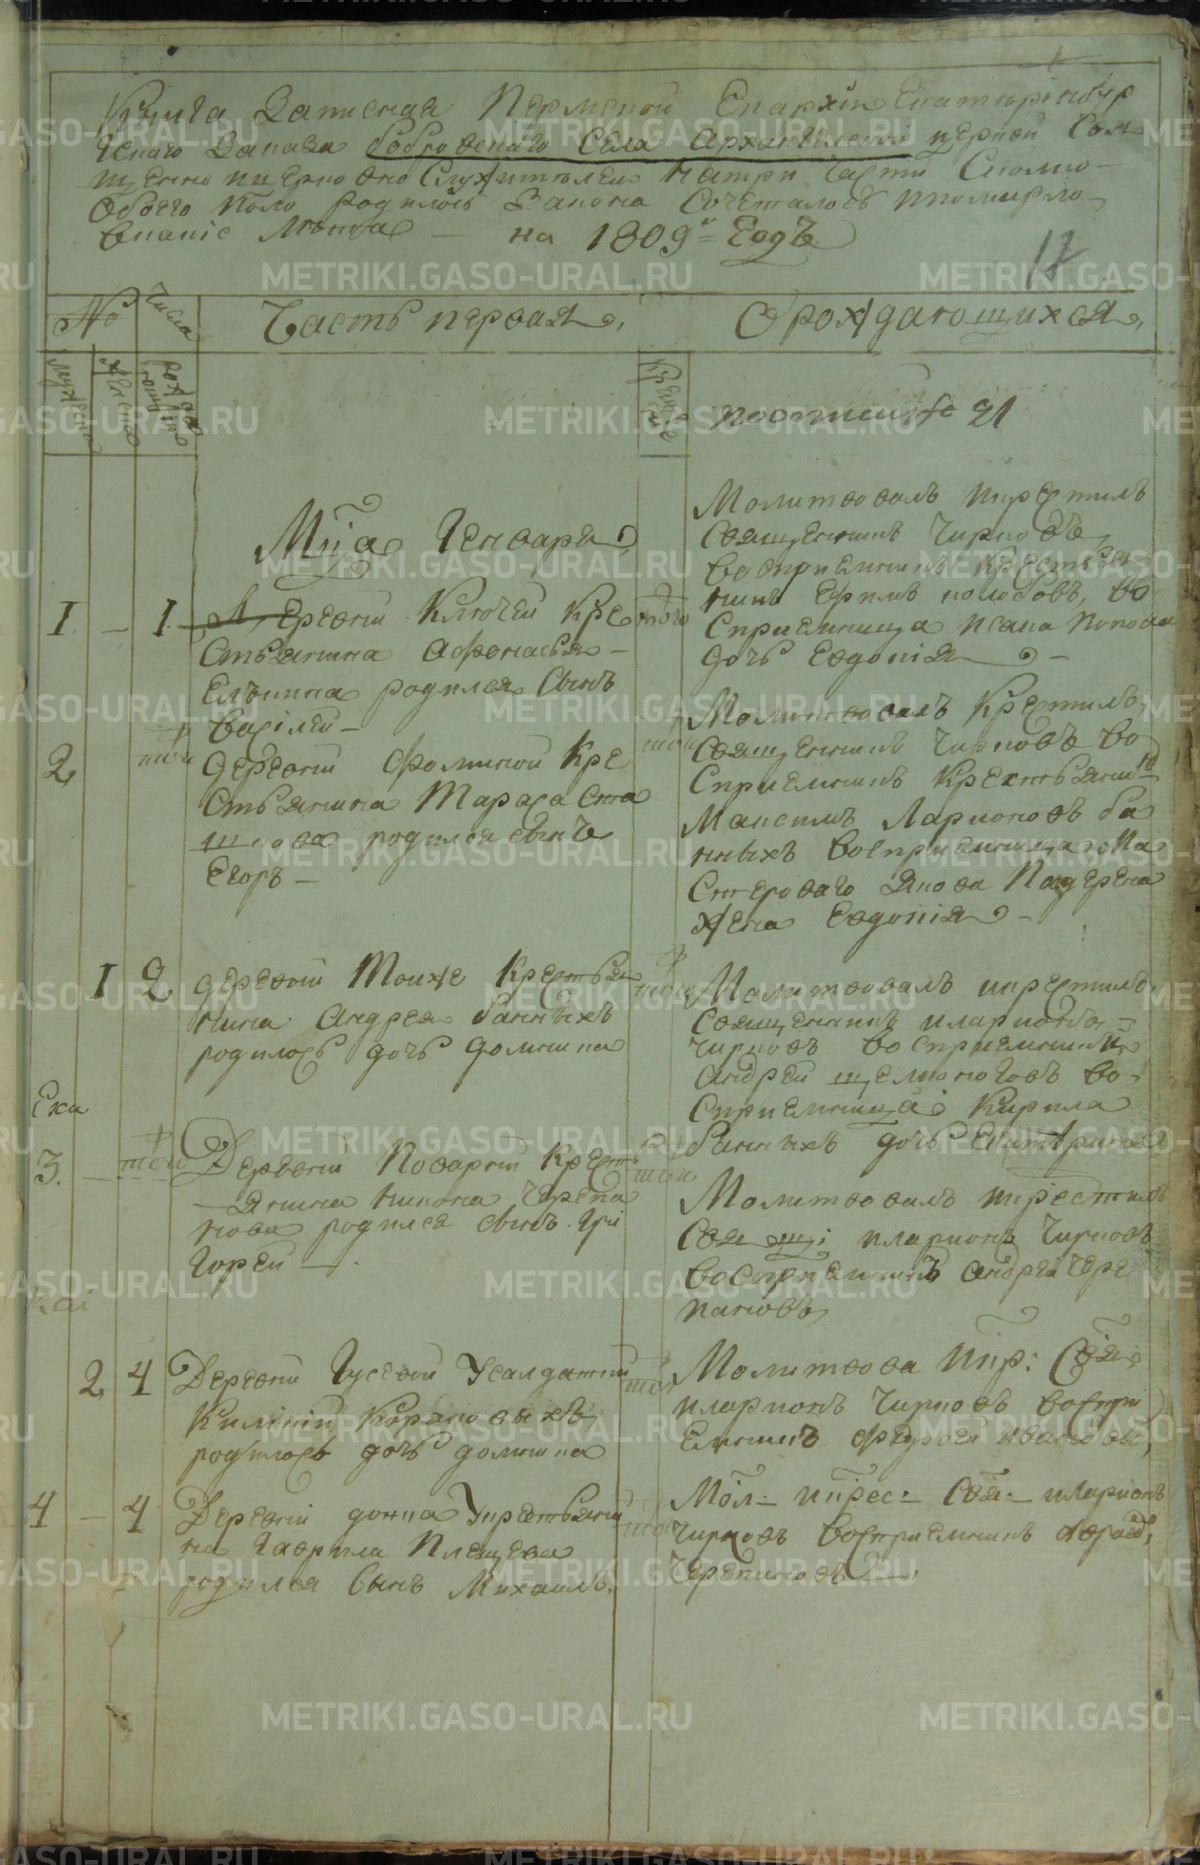 Книга Записная Пермской Епархии Екатирінбур
гскаго Заказа бобровскаго Села Архангельской церкви Свя
щенно и церковно Служителей натри Части Сколко
Обоего полу родилось Законна Сочеталось ипомирло
вкапіе Лѣта — на 1809й Годъ
17
№ Числа Часть первая, О рождающихся,
мужеска женска рожде крещ
Мца Генваря
1 — 1 Деревни Ключей Кре того
Стьянина Афонасья
Елькина родился Сынъ
Василей —
Молитвовалъ икрестилъ
Священникъ Чирковъ
восприемникъ Крестья
нинъ Ефимъ полобовъ, во
Сприемница Исака Попова
дочь Евдокія —
2 той Деревни Фоминой Кре той
Стьянина Тараса
родился сынъ
Егоръ —
Молитвовалъ Крестилъ
Священникъ Чирковъ во
Сприемникъ Крестьянинъ
Максимъ Ларионовъ ба
нныхъ восприемница Ма
Стероваго Якова Падерена
Жена Евдокія —
1 2 деревни Токже Крестья той
нина Андрея банныхъ
родилось дочь Домника
Молитвовалъ икрестилъ
Священникъ иларионъ
Чирковъ восприемникъ
андрей щелконоговъ во
Сприемница Кирила
банныхъ дочь Екатерина
Ека
3. того Деревни Поварни Крест той
янина Никона Черепа
нова родился сынъ Гри
горей —
Молитвовалъ икрестилъ
Свящ: иларионъ Чирковъ
восприемникъ андрей Чере
пановъ
2 4 Деревни Гусевой Усалдатки той
Киликіи Кирьяновыхъ
родилось дочь домника
Молитвова икр: Свя:
иларионъ Чирковъ воспри
емникъ федосей ивановъ,
4 — 4 Деревни Укрестьяни той
на Гаврила Плещева
родился Сынъ Михаилъ,
Мол: икрес: Свя: иларионъ
Чирковъ восприемникъ
Черепановъ —
METRIKI.GASO-URAL.RU